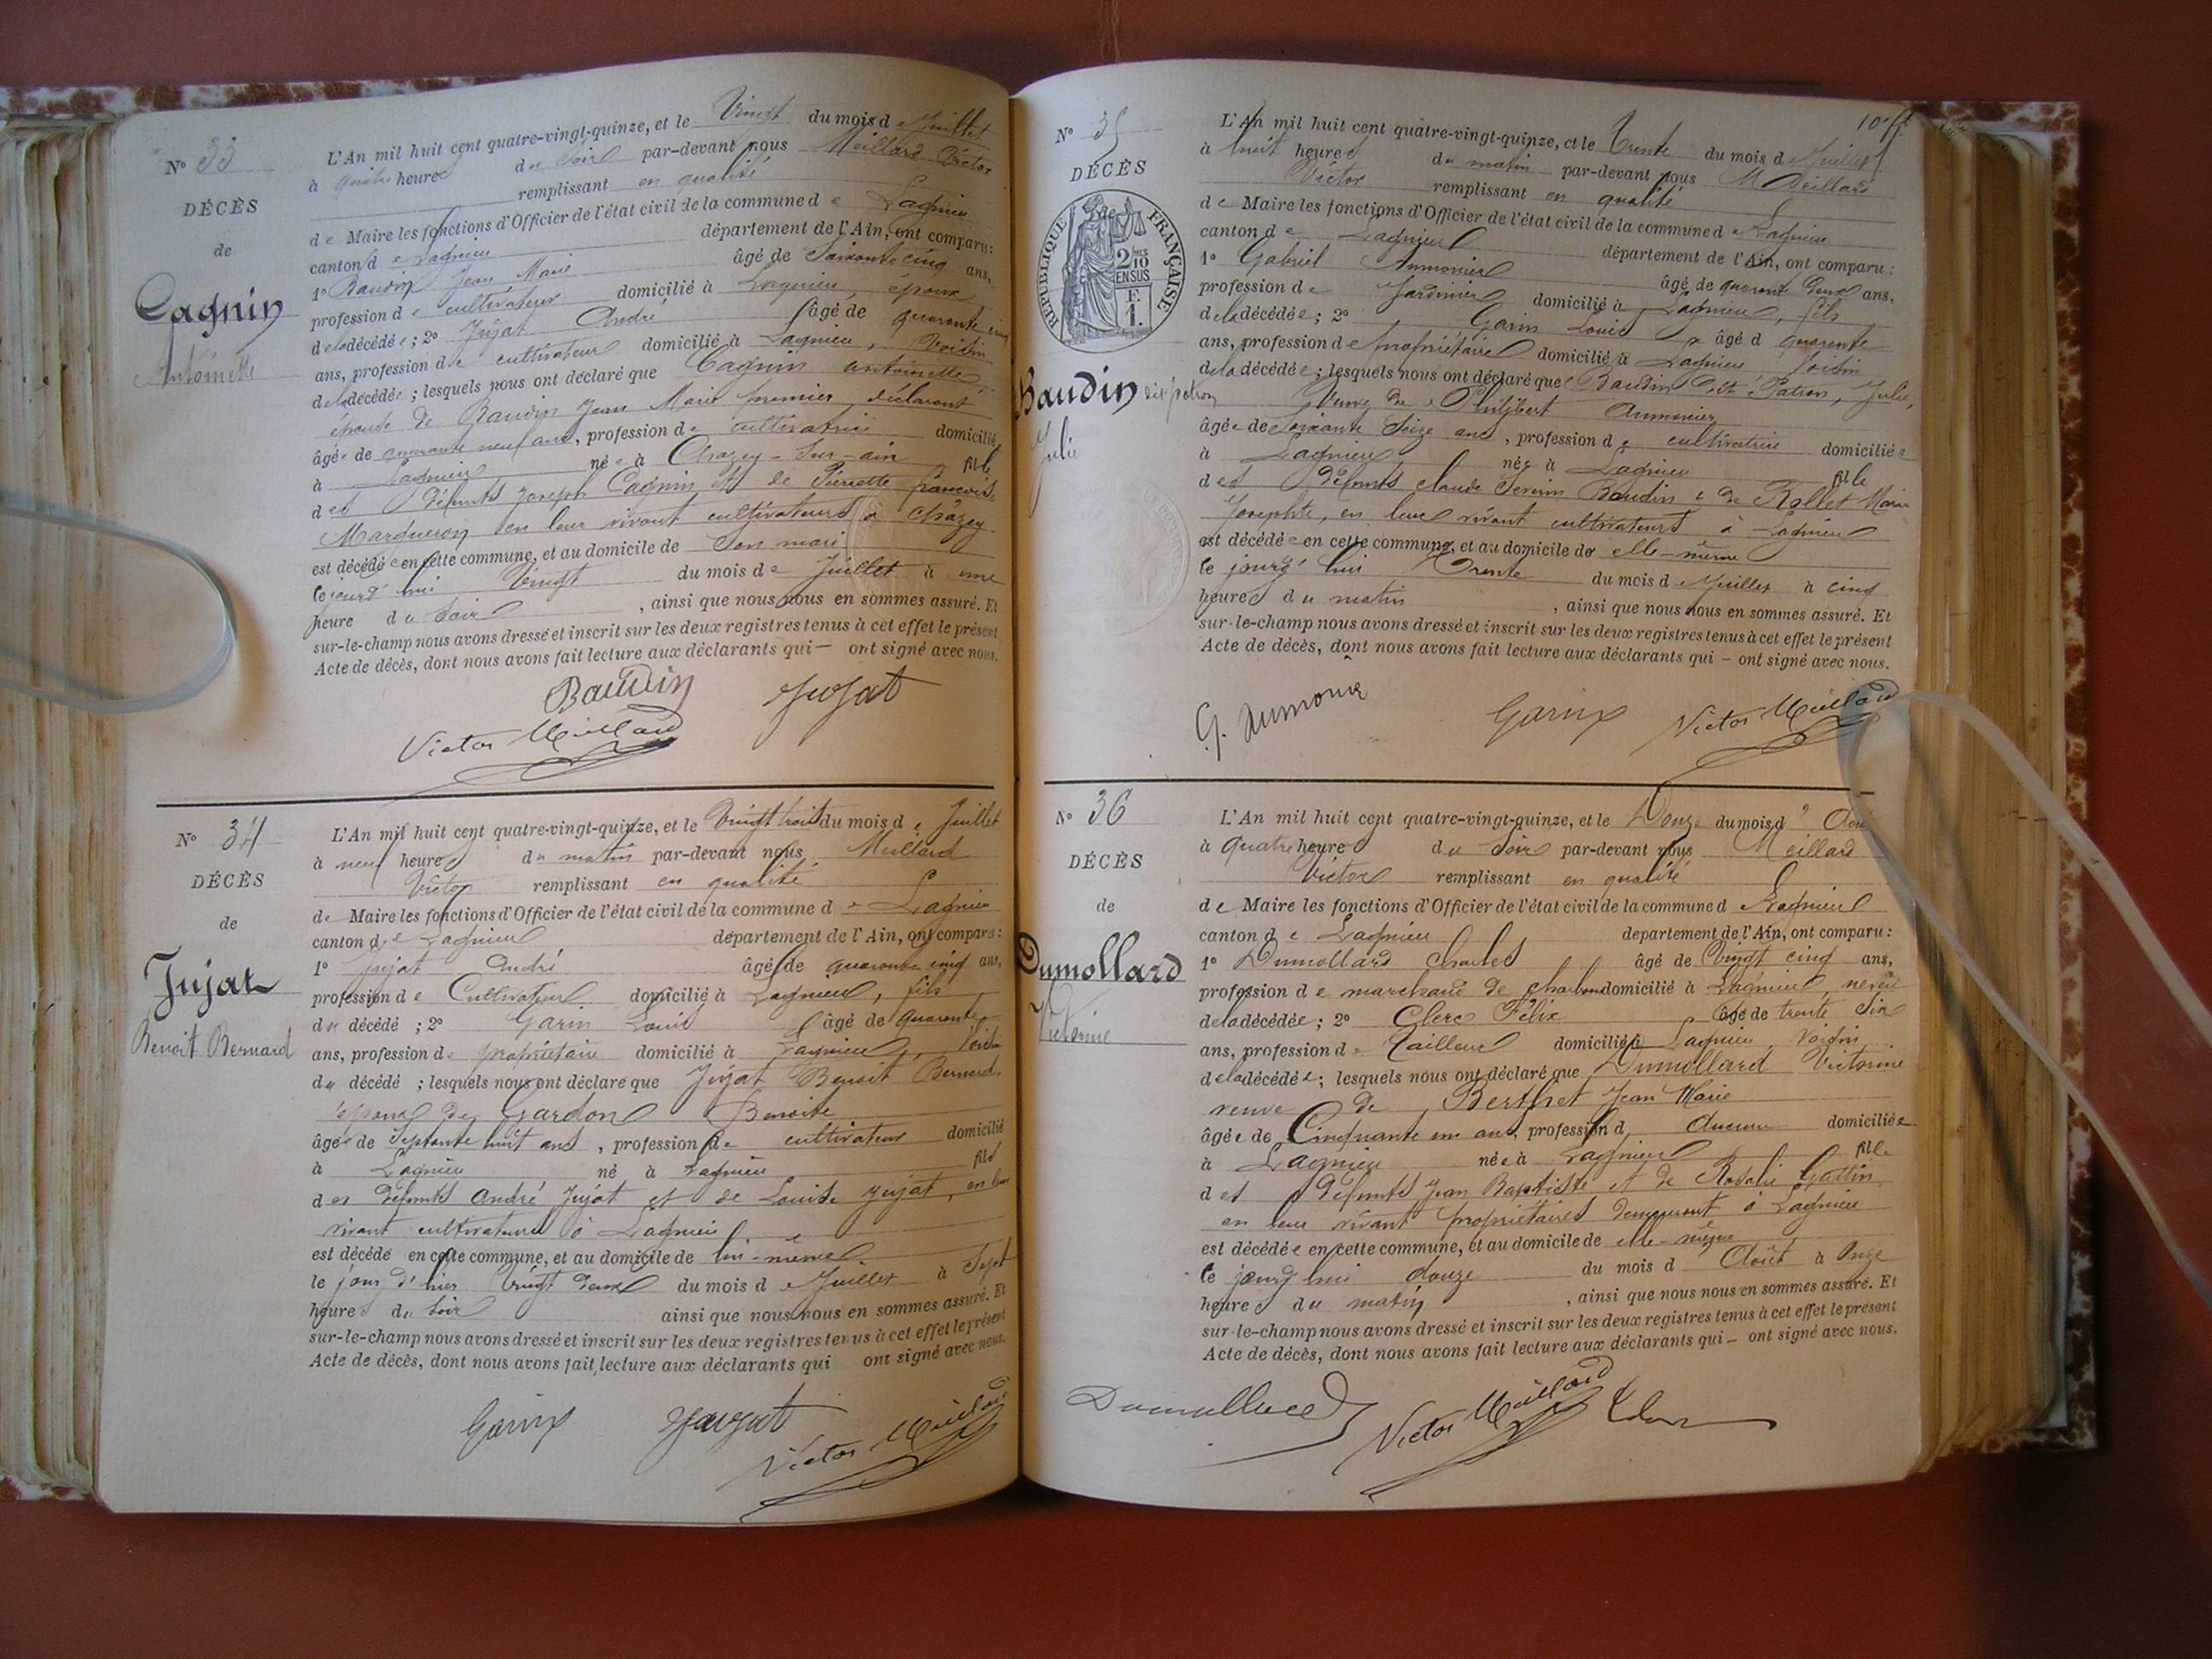 N° 33
DÉCÈS
de
Cagnin
Antoinette
L'An mil huit cent quatre-vingt-quinze, et le Vingt du mois de Juillet
à quatre heures du soir par-devant nous Meillard Victor
remplissant en qualité
de Maire les fonctions d'Officier de l'état civil de la commune de Lagnieu
canton de Lagnieu département de l'Ain, ont comparu:
1° Baudin Jean Marie âgé de Soixante cinq ans,
profession de cultivateur domicilié à Lagnieu, époux
de la décédée; 2° Jujat André âgé de quarante cinq
ans, profession de cultivateur domicilié à Lagnieu, voisin
de la décédée; lesquels nous ont déclaré que Cagnin antoinette,
épouse de Baudin Jean Marie premier déclarant
âgée de quarante neuf ans, profession de cultivatrice domiciliée
à Lagnieu née à Chazey-sur-ain fille
des défunts Joseph Cagnin et de Pierrette françoise
Margueron en leur vivant cultivateurs à Chazey
est décédée en cette commune, et au domicile de son mari
le jourd'hui Vingt du mois de Juillet à une
heure du soir, ainsi que nous nous en sommes assuré. Et
sur-le-champ nous avons dressé et inscrit sur les deux registres tenus à cet effet le présent
Acte de décès, dont nous avons fait lecture aux déclarants qui — ont signé avec nous.
Baudin Jujat
Victor Meillard
N° 34
DÉCÈS
de
Jujat
Benoit Bernard
L'An mil huit cent quatre-vingt-quinze, et le Vingt trois du mois de Juillet
à neuf heures du matin par-devant nous Meillard
Victor remplissant en qualité
de Maire les fonctions d'Officier de l'état civil de la commune de Lagnieu
canton de Lagnieu département de l'Ain, ont comparu:
1° Jujat André âgé de quarante cinq ans,
profession de Cultivateur domicilié à Lagnieu, fils
du décédé; 2° Garin Louis âgé de quarante
ans, profession de propriétaire domicilié à Lagnieu, voisin
du décédé; lesquels nous ont déclaré que Jujat Benoit Bernard
époux de Gardon Benoite
âgé de Septante huit ans, profession de cultivateur domicilié
à Lagnieu né à Lagnieu fils
des défunts André Jujat et de Louise Jujat, en leur
vivant cultivateurs à Lagnieu
est décédé en cette commune, et au domicile de lui-même
le jour d'hier Vingt deux du mois de Juillet à Sept
heures du soir ainsi que nous nous en sommes assuré. Et
sur-le-champ nous avons dressé et inscrit sur les deux registres tenus à cet effet le présent
Acte de décès, dont nous avons fait lecture aux déclarants qui ont signé avec nous.
Garin Jujat
Victor Meillard
N° 35
DÉCÈS
de
RÉPUBLIQUE FRANÇAISE
2/10 EN SUS
F. 1.
Baudin dit patron
Julie
L'An mil huit cent quatre-vingt-quinze, et le Trente du mois de Juillet
à huit heures du matin par-devant nous M Meillard
Victor remplissant en qualité
de Maire les fonctions d'Officier de l'état civil de la commune de Lagnieu
canton de Lagnieu département de l'Ain, ont comparu:
1° Gabriel Aumonier âgé de quarante deux ans,
profession de Jardinier domicilié à Lagnieu, fils
de la décédée; 2° Garin Louis âgé de quarante
ans, profession de propriétaire domicilié à Lagnieu voisin
de la décédée; lesquels nous ont déclaré que Baudin Dit Patron, Julie,
Veuve de Philibert Aumonier
âgée de Soixante Seize ans, profession de cultivatrice domiciliée
à Lagnieu née à Lagnieu fille
des Défunts claude Séverin Baudin & de Rollet Marie
Josephte, en leur vivant cultivateurs à Lagnieu
est décédée en cette commune, et au domicile de elle-même
le jourd'hui Trente du mois de Juillet à cinq
heures du matin, ainsi que nous nous en sommes assuré. Et
sur-le-champ nous avons dressé et inscrit sur les deux registres tenus à cet effet le présent
Acte de décès, dont nous avons fait lecture aux déclarants qui — ont signé avec nous.
G. Aumonier Garin Victor Meillard
N° 36
DÉCÈS
de
Dumollard
Victorine
L'An mil huit cent quatre-vingt-quinze, et le Douze du mois d'Août
à quatre heures du soir par-devant nous Meillard
Victor remplissant en qualité
de Maire les fonctions d'Officier de l'état civil de la commune de Lagnieu
canton de Lagnieu département de l'Ain, ont comparu:
1° Dumollard Charles âgé de Vingt cinq ans,
profession de marchand de charbon domicilié à Lagnieu, neveu
de la décédée; 2° Clerc Félix âgé de trente six
ans, profession de Tailleur domicilié à Lagnieu, Voisin
de la décédée; lesquels nous ont déclaré que Dumollard Victorine
veuve de Berthet Jean Marie
âgée de Cinquante un ans, profession d Aucune domiciliée
à Lagnieu née à Lagnieu fille
des Défunts Jean Baptiste et de Rosalie Gattin
en leur vivant propriétaires demeurant à Lagnieu
est décédée en cette commune, et au domicile de elle-même
le jourd'hui douze du mois d Août à Onze
heures du matin, ainsi que nous nous en sommes assuré. Et
sur-le-champ nous avons dressé et inscrit sur les deux registres tenus à cet effet le présent
Acte de décès, dont nous avons fait lecture aux déclarants qui — ont signé avec nous.
Dumollard Victor Meillard